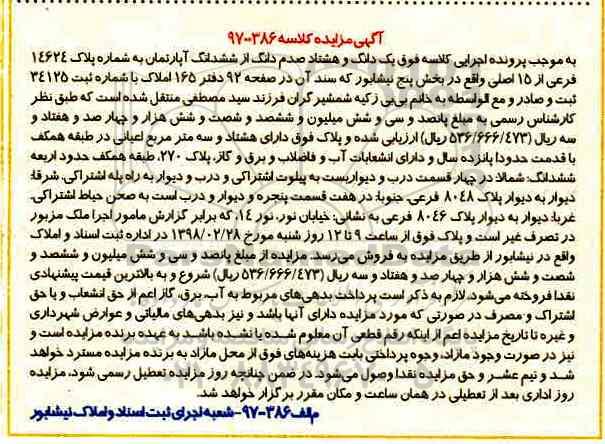 آگهی مزایده کلاسه ۹۷۰۰۳۸۶
به موجب پرونده اجرایی کلاسه فوق یک دانگ و هشتاد صدم دانگ از ششدانگ آپارتمان به شماره پلاک ۱۴۶۲۴
فرعی از ۱۵ اصلی واقع در بخش پنج نیشابور که سند آن در صفحه ۹۲ دفتر ۱۶۵ املاک با شماره ثبت ۳۴۱۲۵
ثبت و صادر و مع الواسطه به خانم بی بی زکیه شمشیرگران فرزند سید مصطفی منتقل شده است که طبق نظر
کارشناس رسمی به مبلغ پانصد و سی و شش میلیون و ششصد و شصت و شش هزار و چهار صد و هفتاد و
سه ریال (۵۳۶/۶۶۶/۴۷۳ ریال) ارزیابی شده و پلاک فوق دارای هشتاد و سه متر مربع اعیانی در طبقه همکف
با قدمت حدودا پانزده سال و دارای انشعابات آب و فاضلاب و برق و گاز، پلاک ۲۷۰، طبقه همکف حدود اربعه
ششدانگ: شمالا: در چهار قسمت درب و دیواریست به پیلوت اشتراکی و درب و دیوار به راه پله اشتراکی. شرقا:
دیوار به دیوار پلاک ۸۰۴۸ فرعی. جنوبا: در هفت قسمت پنجره و دیوار و درب است به صحن حیاط اشتراکی.
غربا: دیوار به دیوار پلاک ۸۰۴۶ فرعی به نشانی: خیابان نور، نور ۱۴، که برابر گزارش مامور اجرا ملک مزبور
در تصرف غیر است و پلاک فوق از ساعت ۹ تا ۱۲ روز شنبه مورخ ۱۳۹۸/۰۲/۲۸ در اداره ثبت اسناد و املاک
واقع در نیشابور از طریق مزایده به فروش می‌رسد. مزایده از مبلغ پانصد و سی و شش میلیون و ششصد و
شصت و شش هزار و چهار صد و هفتاد و سه ریال (۵۳۶/۶۶۶/۴۷۳ ریال) شروع و به بالاترین قیمت پیشنهادی
نقدا فروخته می‌شود. لازم به ذکر است پرداخت بدهی‌های مربوط به آب، برق، گاز اعم از حق انشعاب و یا حق
اشتراک و مصرف در صورتی که مورد مزایده دارای آنها باشد و نیز بدهی‌های مالیاتی و عوارض شهرداری
و غیره تا تاریخ مزایده اعم از اینکه رقم قطعی آن معلوم شده یا نشده باشد به عهده برنده مزایده است و
نیز در صورت وجود مازاد، وجوه پرداختی بابت هزینه‌های فوق از محل مازاد به برنده مزایده مسترد خواهد
شد و نیم عشر و حق مزایده نقدا وصول می‌شود. در ضمن چنانچه روز مزایده تعطیل رسمی شود، مزایده
روز اداری بعد از تعطیلی در همان ساعت و مکان مقرر برگزار خواهد شد.
م الف ۹۷۰۰۳۸۶- شعبه اجرای ثبت اسناد و املاک نیشابور